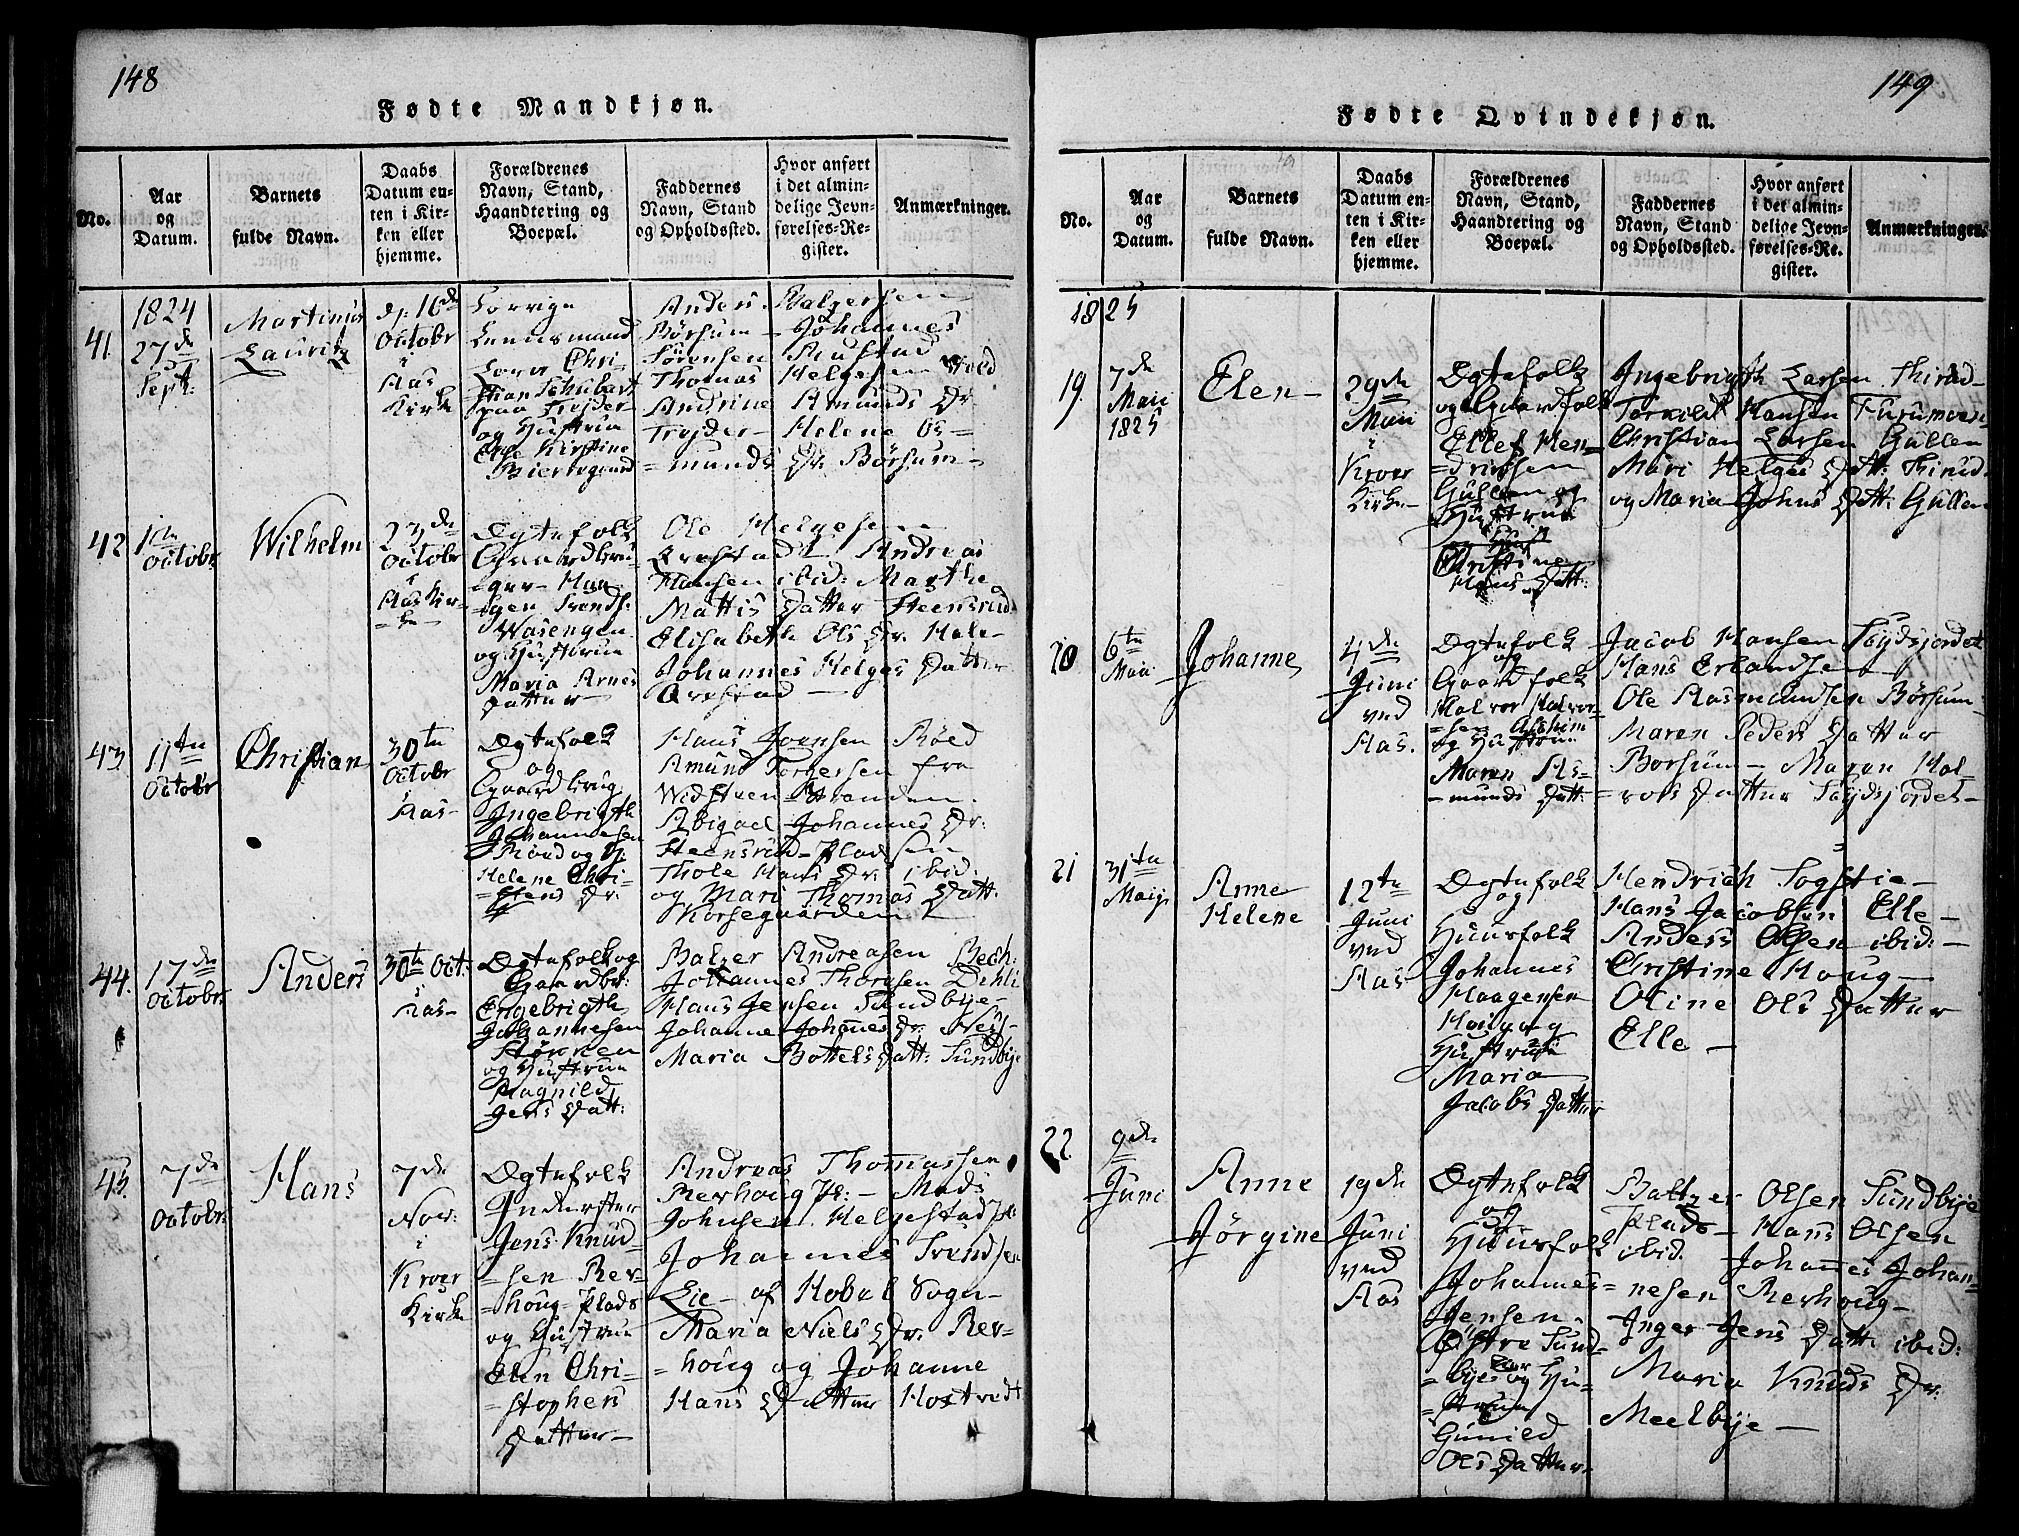 148
Fødte Mandkjøn.
No.
Aar
og
Datum.
Barnets
fulde Navn.
Daabs
Datum en-
ten i Kir-
ken eller
hjemme.
Forældrenes
Navn, Stand,
Haandtering og
Boepæl.
Faddernes
Navn, Stand
og Opholdssted.
Hvor anført
i det almin-
delige Jevn-
førelses-Re-
gister.
Anmærkninger.
41.
1824
27de
Sept:
Martinus
Lauritz
dp: 16de
Octobr
i
Aas
Kirke
Sorrige
Lennsmand
Chri-
stian Schubart
paa Trøjder
og Hustrue
Else Kirstine
Anders Balzersen
Børsum – Johannes
Sörensen Rustad
Thomas Helgesen Wold
Andrine Amunds Dr
Trøjder – Helene Os-
=munds Dr. Börsum –
42
1ste
Octobr.
Wilhelm
23de
Octobr
i
Aas Kir-
=ke
Ægtefolk
Gaardbru-
=ger – Haa-
=gen Svends:
Wasengen
og Hustrue
Maria Arnes
Datter –
Ole Helgesen
Qvestad – Andreas
Hansen ibid: Marthe
Mattis Datter Steensrud.
Elisabeth Ols Dr. Hole –
Johannes Helges Datter
Qvestad –
43.
11te
Octobr
Christian
30te
Octobr
i
Aas –
Ægtefolk
og
Gaardbrug
Ingebrigth
Johannesen
Helene Chri-
=stens Dr.
Hans Joensen Röed
Amund Torgersen fra
Widsteen – Stranden.
Abigael Johannes Dr:
Steensrud – Pladsen
Thole Hans Dr. ibid:
og Mari Thomas Datt:
Korsegaarden
44.
17de
Octobr.
Anders
30te Oct:
i
Aas –
Ægtefolk og
Gaardbr:
Engebrigth
Johannesen
Störken
og Hustrue
Ragnild
Jens Datt:
Balzer Andreasen Bech:
Johannes Thoresen Dehli
Hans Jensen Sundbye –
Johanne Johannes Dr. Ness –
Maria Bottels Datt: Sundbye
45.
7de
Octobr:
Hans
7de
Nov:
i
Kroer
Kirke
Ægtefolk
Inderster
Jens Knud-
=sen Rer-
=houg – Plads
og Hustrue
Elen Chri-
=stophers
Datter –
Andreas Thomassen
Rerhoug Pl: – Mads
Johnsen Helgestad
Johannes Svendsen
Lie – af Hobøl Sogn –
Maria Niels Dr. Rer-
=houg og Johanne
Hans Datter Hostvedt
149
Fødte Qvindekjøn.
No.
Aar
og
Datum.
Barnets
fulde Navn.
Daabs
Datum en-
ten i Kir-
ken eller
hjemme.
Forældrenes
Navn, Stand,
Haandtering og
Boepæl.
Faddernes
Navn, Stand
og Opholdssted.
Hvor anført
i det almin-
delige Jevn-
førelses-Re-
gister.
Anmærkninger.
1825
19.
7de
Maii
1825
Elen –
29de
Maii
i
Kroer
Kirke –
Ægtefolk
og Gaardfolk
Ellef Hen-
=drichsen
Gullen og
Hustrue
Christine
Hans Datt:
Ingebrigth Larsen Thirud –
Torkild Hansen Furumoen
Christian Larsen Gullen
Mari Helges Datt: Thirud.
og Maria Johns Datt: Gullen
20
6te
Maii
Johanne
4de
Juni
ved
Aas.
Ægtefolk
og
Gaardfolk
Halvor Halvor-
=sen
og Hustrue
Maren As-
=munds Datt:
Jacob Hansen
Hans Erlandsen
Ole Rasmundsen Börsum –
Maren Peders Datter
Borsum – Maren Hal-
=vors Datter
21
31te
Maij.
Anne
Helene
12te
Juni
ved
Aas
Ægtefolk
og
Huusfolk
Johannes
Haagensen
Houg og
Hustrue
Maria
Jacobs Datter
Hendrich Togstie –
Hans Jacobsen Elle –
Anders Olsen ibid: –
Christine Houg –
Oline Ols Datter
Elle –
22.
9de
Juni
Anne
Jørgine
19de
Juni
ved
Aas
Ægtefolk
og
Huusfolk
Johannes
Jensen –
Østre Sund-
=bye og Hu-
=strue
Gunild
Ols Datter –
Baltzer Olsen Sundbye
Plads – Hans Olsen
ibid. Johannes Johan-
=nesen Rerhoug –
Inger Jens Datt: ibid:
Maria Knuds Dr.
Meelbye –